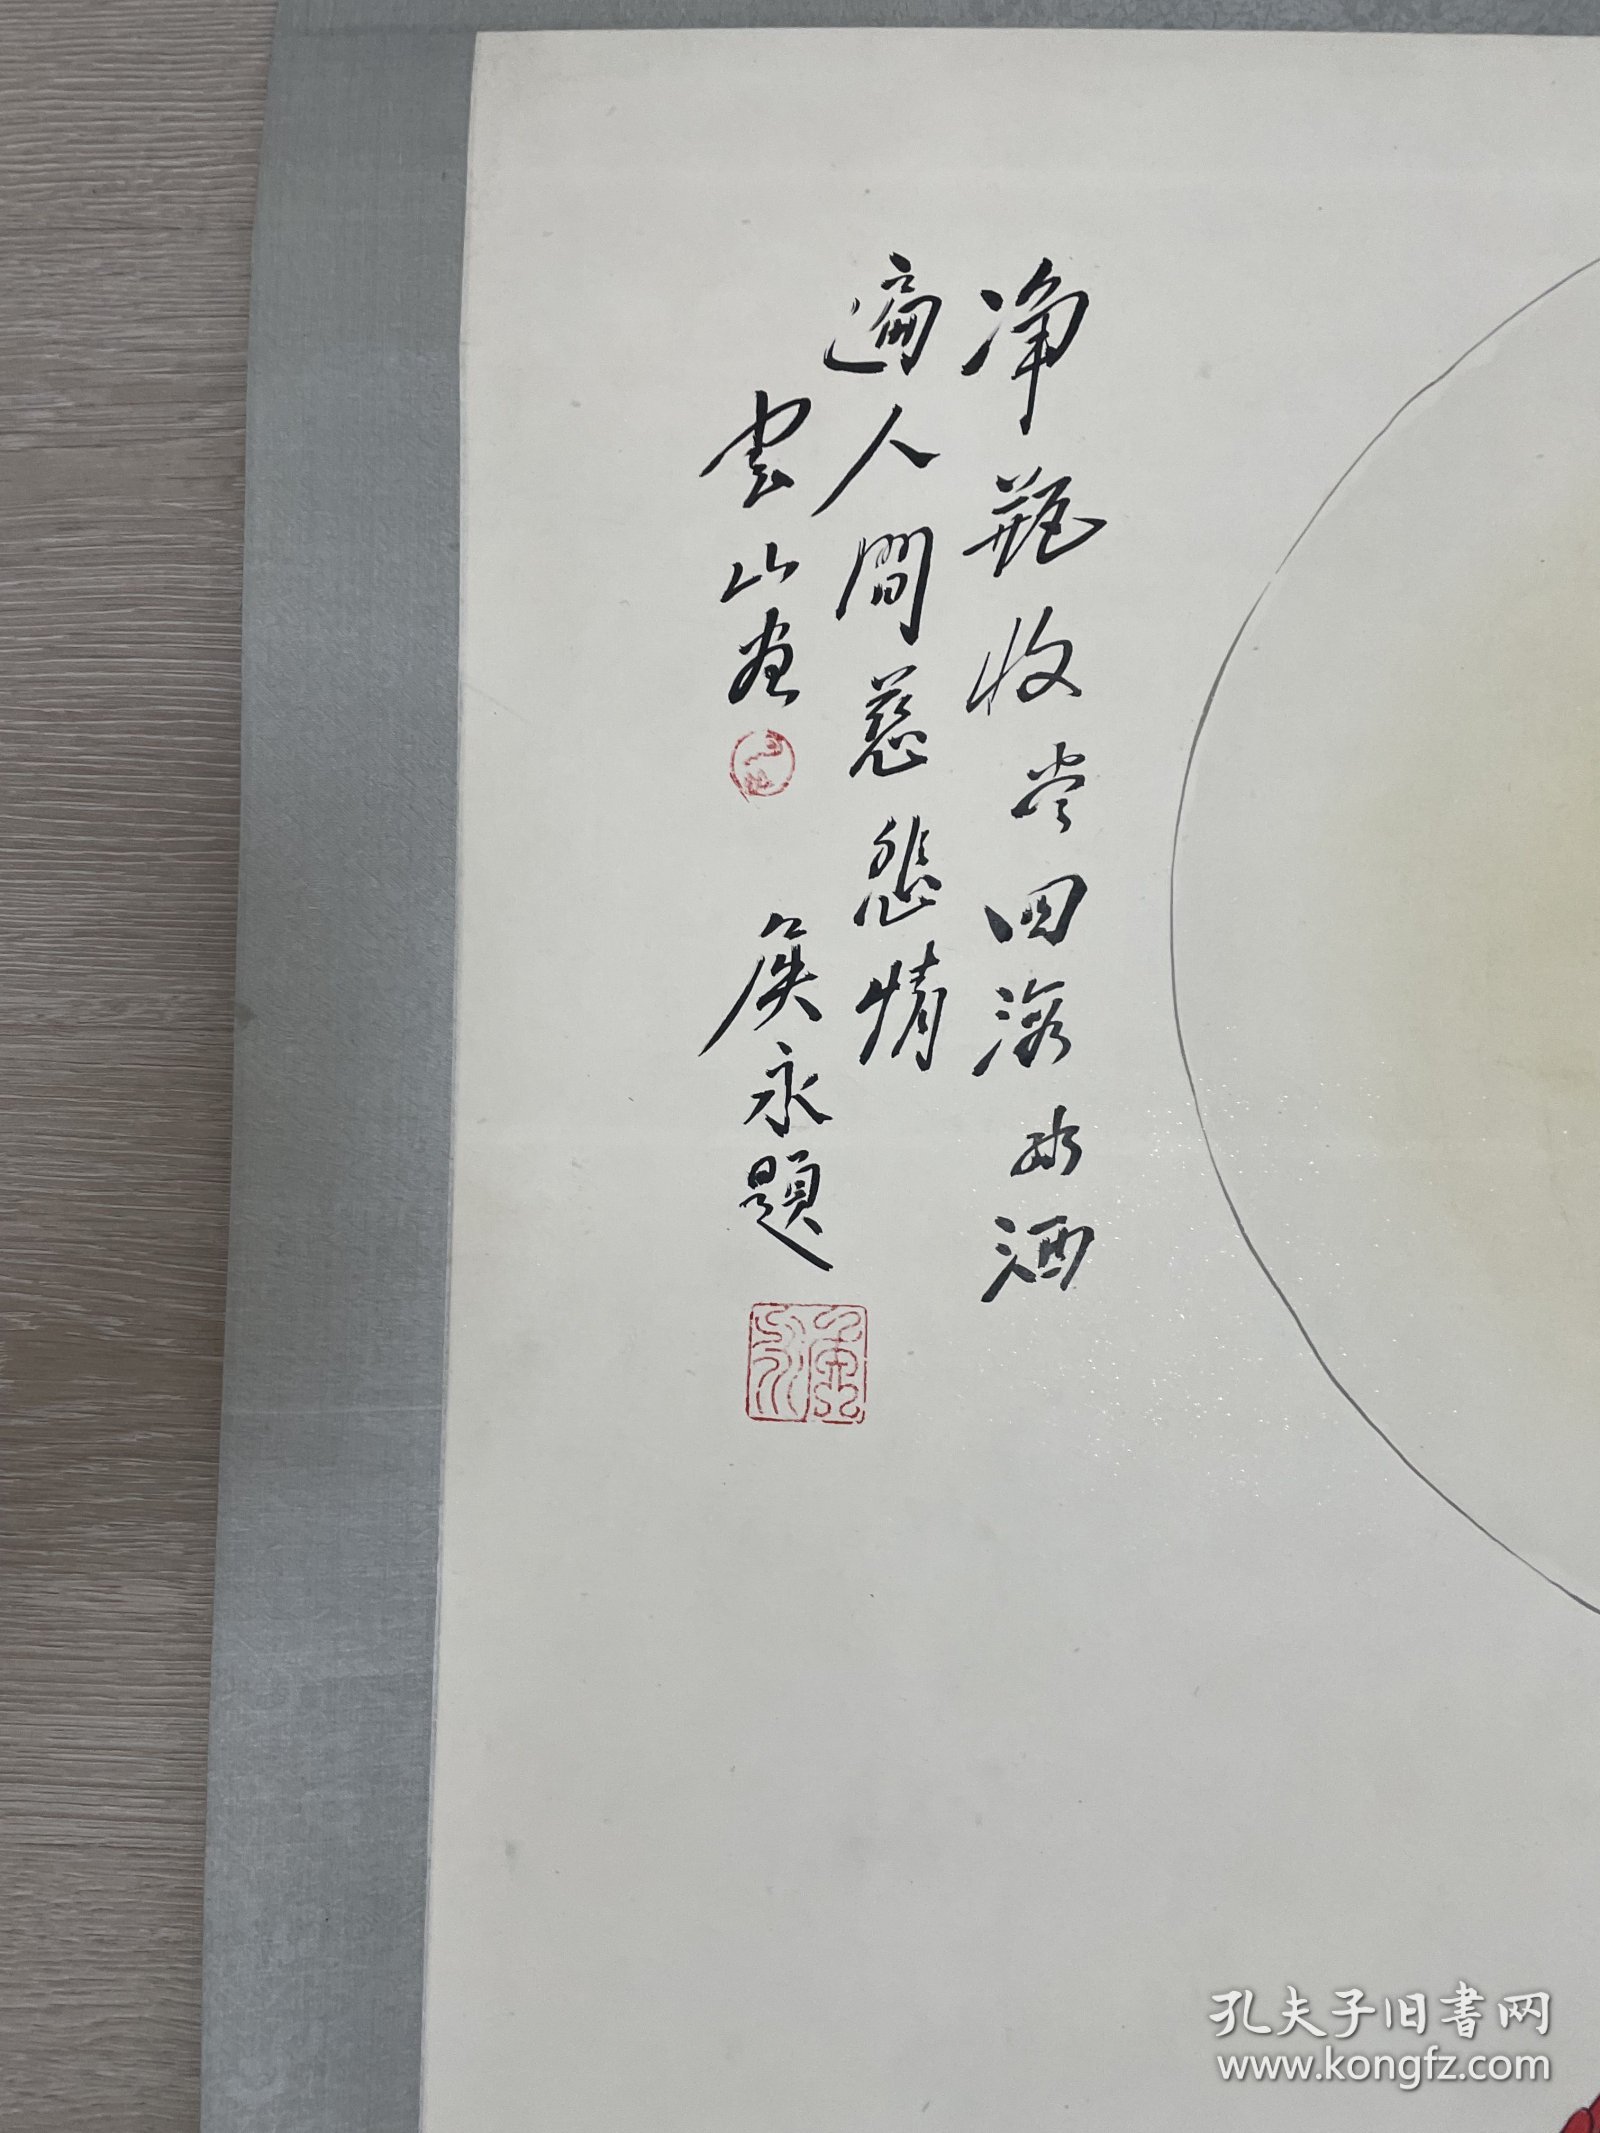 净瓶收尝四海水洒
遍人間慈悲情
雲山画
侯永題
孔夫子旧书网
www.kongfz.com